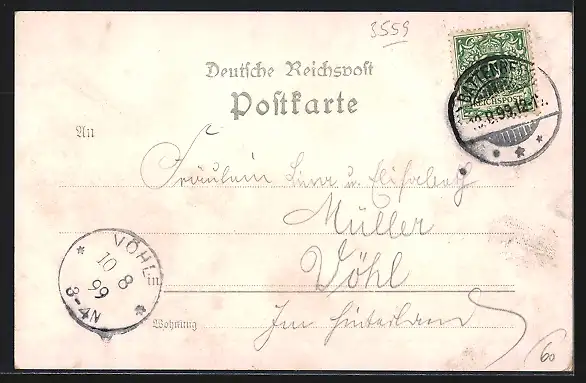 3559
Deutsche Reichspost
Postkarte
REICHSPOST
An
Fräulein u. Elisabeth
Müller
VÖHL
10 8
99
3-4N
in Vöhl
Wohnung Im Hinterland
60